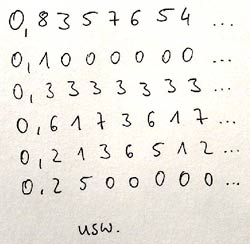 0,8357654 ...
0,1000000 ...
0,3333333 ...
0,6173617 ...
0,2136512 ...
0,2500000 ...
usw.